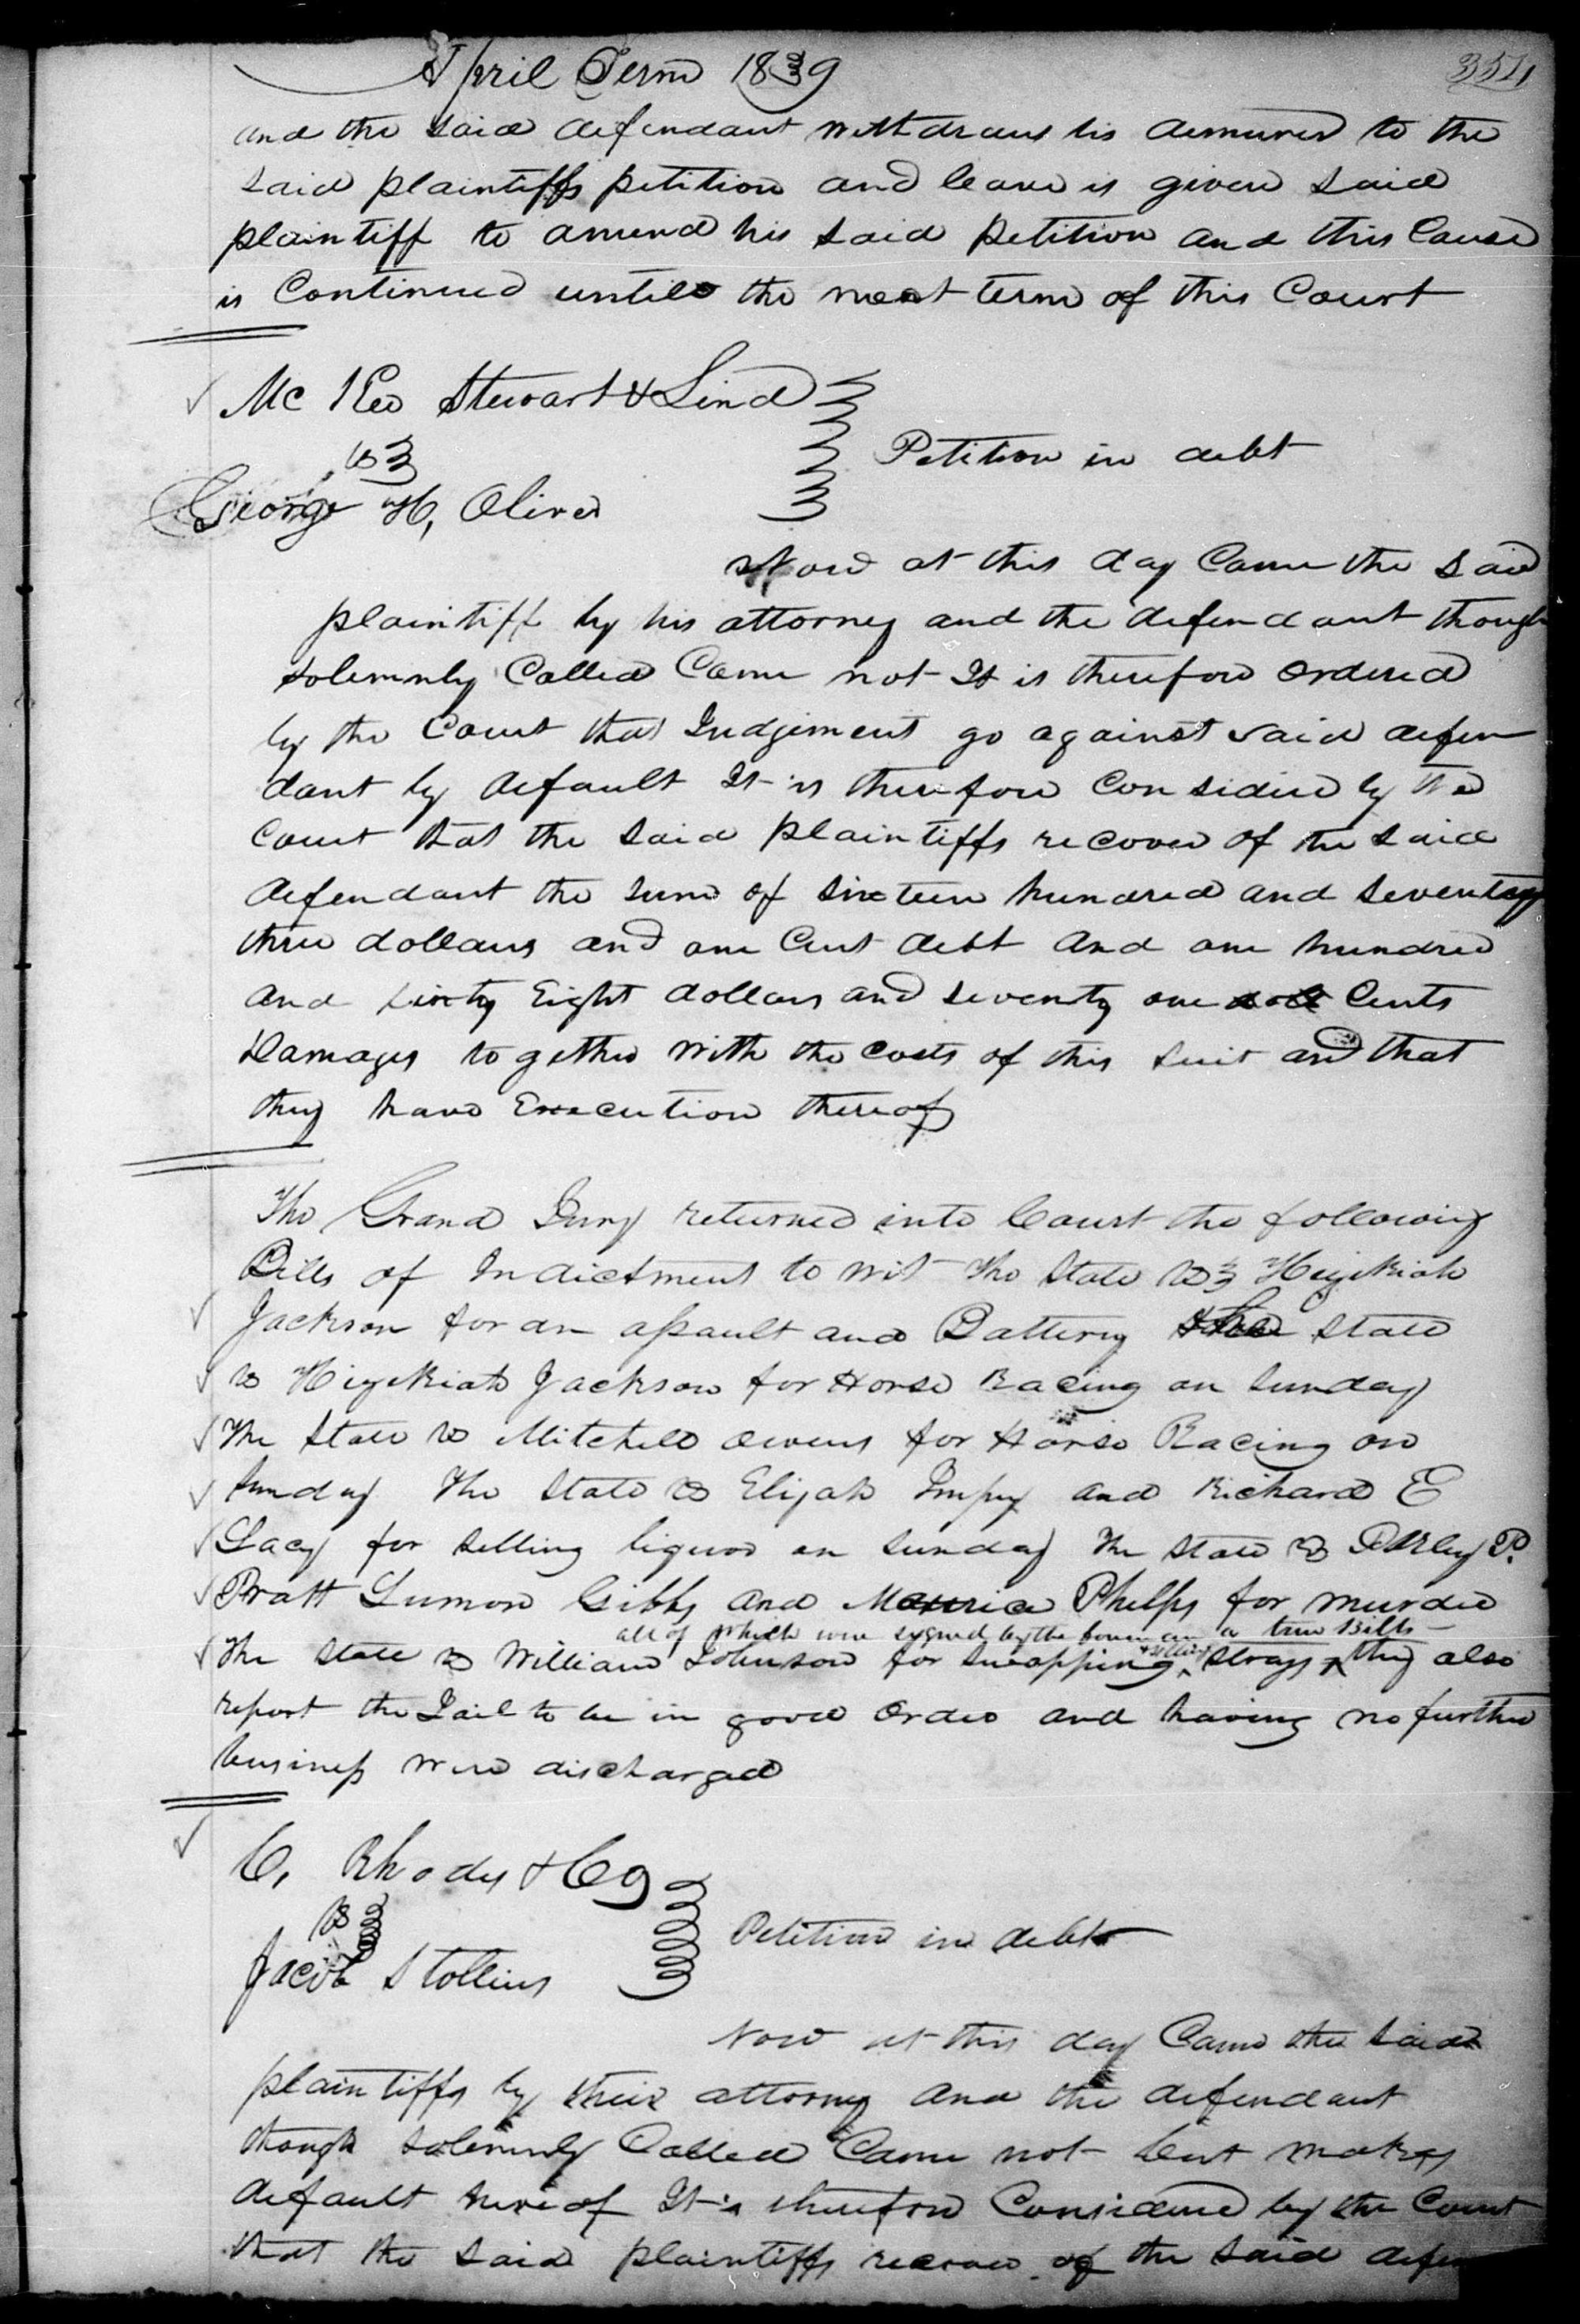 April Term 1839
354
and the said defendant withdraws his demurer to the
said plaintiffs petition and leave is given said
plaintiff to amend his said petition and this Cause
is Continued untill the next term of this Court
Mc Kee Stewart & Lind
vs
Petition in debt
George H, Oliver
Now at this day Came the said
plaintiff by his attorney and the defendant though
solemnly Called Came not It is therefore ordered
by the Court that Judgement go against said defen
dant by default It is therefore Considered by the
Court that the said plaintiffs recover of the said
defendant the sum of sixteen hundred and seventy
three dollars and one Cent debt and one hundred
and sixty Eight dollars and seventy one Cents
Damages together with the costs of this suit and that
they have Execution thereof
The Grand Jury returned into Court the following
Bills of Indictment to wit The State vs Hezekiah
Jackson for an assault and Battery The State
vs Hezekiah Jackson for Horse Racing on Sunday
The State vs Mitchell Owens for Horse Racing on
Sunday The State vs Elijah Impey and Richard E
Lacy for selling liquor on Sunday The State vs Parley P.
Pratt Lumon Gibbs and Maurice Phelps for murder
all of which were signed by the foreman a true Bills
The State vs William Johnson for swapping & selling strays they also
report the Jail to be in good order and having no further
business were discharged
C, Rhodes & Co
vs
Petition in debt
Jacob Stollins
Now at this day Came the said
plaintiffs by their attorney and the defendant
though solemnly Called Came not but makes
default hereof It is therefore Considered by the Court
that the said plaintiffs recover of the said defen